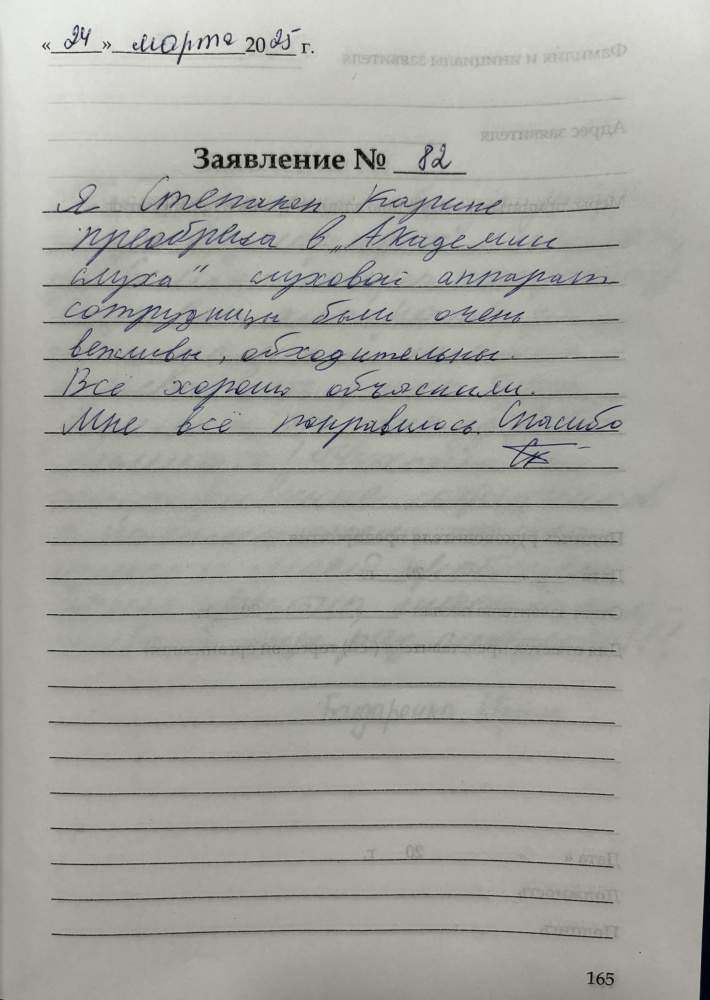 « 24 » марта 2025 г.
Заявление № 82
Я Степанен Карине
преобрела в „Академии
слуха" слуховой аппарат
сотрудницы были очень
вежливы, обходительны.
Всё хорошо объяснили.
Мне всё понравилось. Спасибо
165